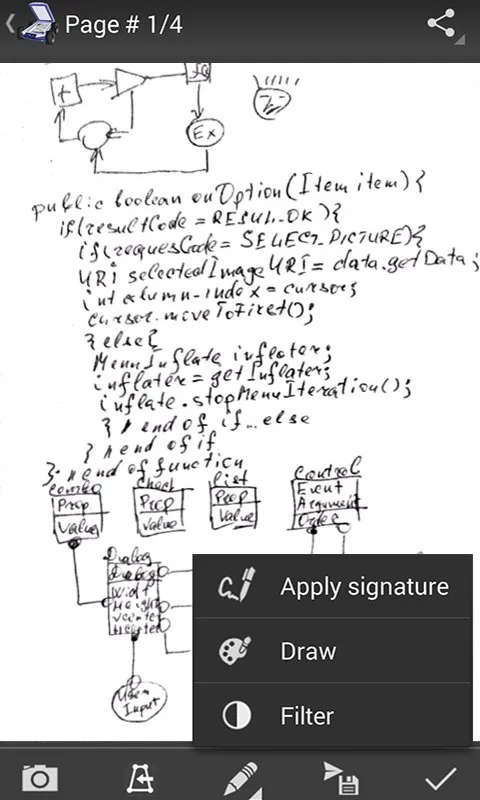 Page # 1/4
+
Ex
public boolean onOption(Item item){
if(resultCode = RESUL_OK){
if(requesCode = SELECT_PICTURE){
URi selectedImage URI = data.getData;
int column_index = cursor;
cursor.moveToFirst();
} else{
MenuInflate inflator;
inflater = getInflater;
inflate.stopMenuIteration();
} // end of if...else
} // end of if
}. // end of function
Combo
Check
List
Control
Prop
Prop
Prop
Event
Value
Value
Value
Argument
Order
Dialog
Dialog
Widt
Height
Vcenter
Hcenter
User
Input
Apply signature
Draw
Filter